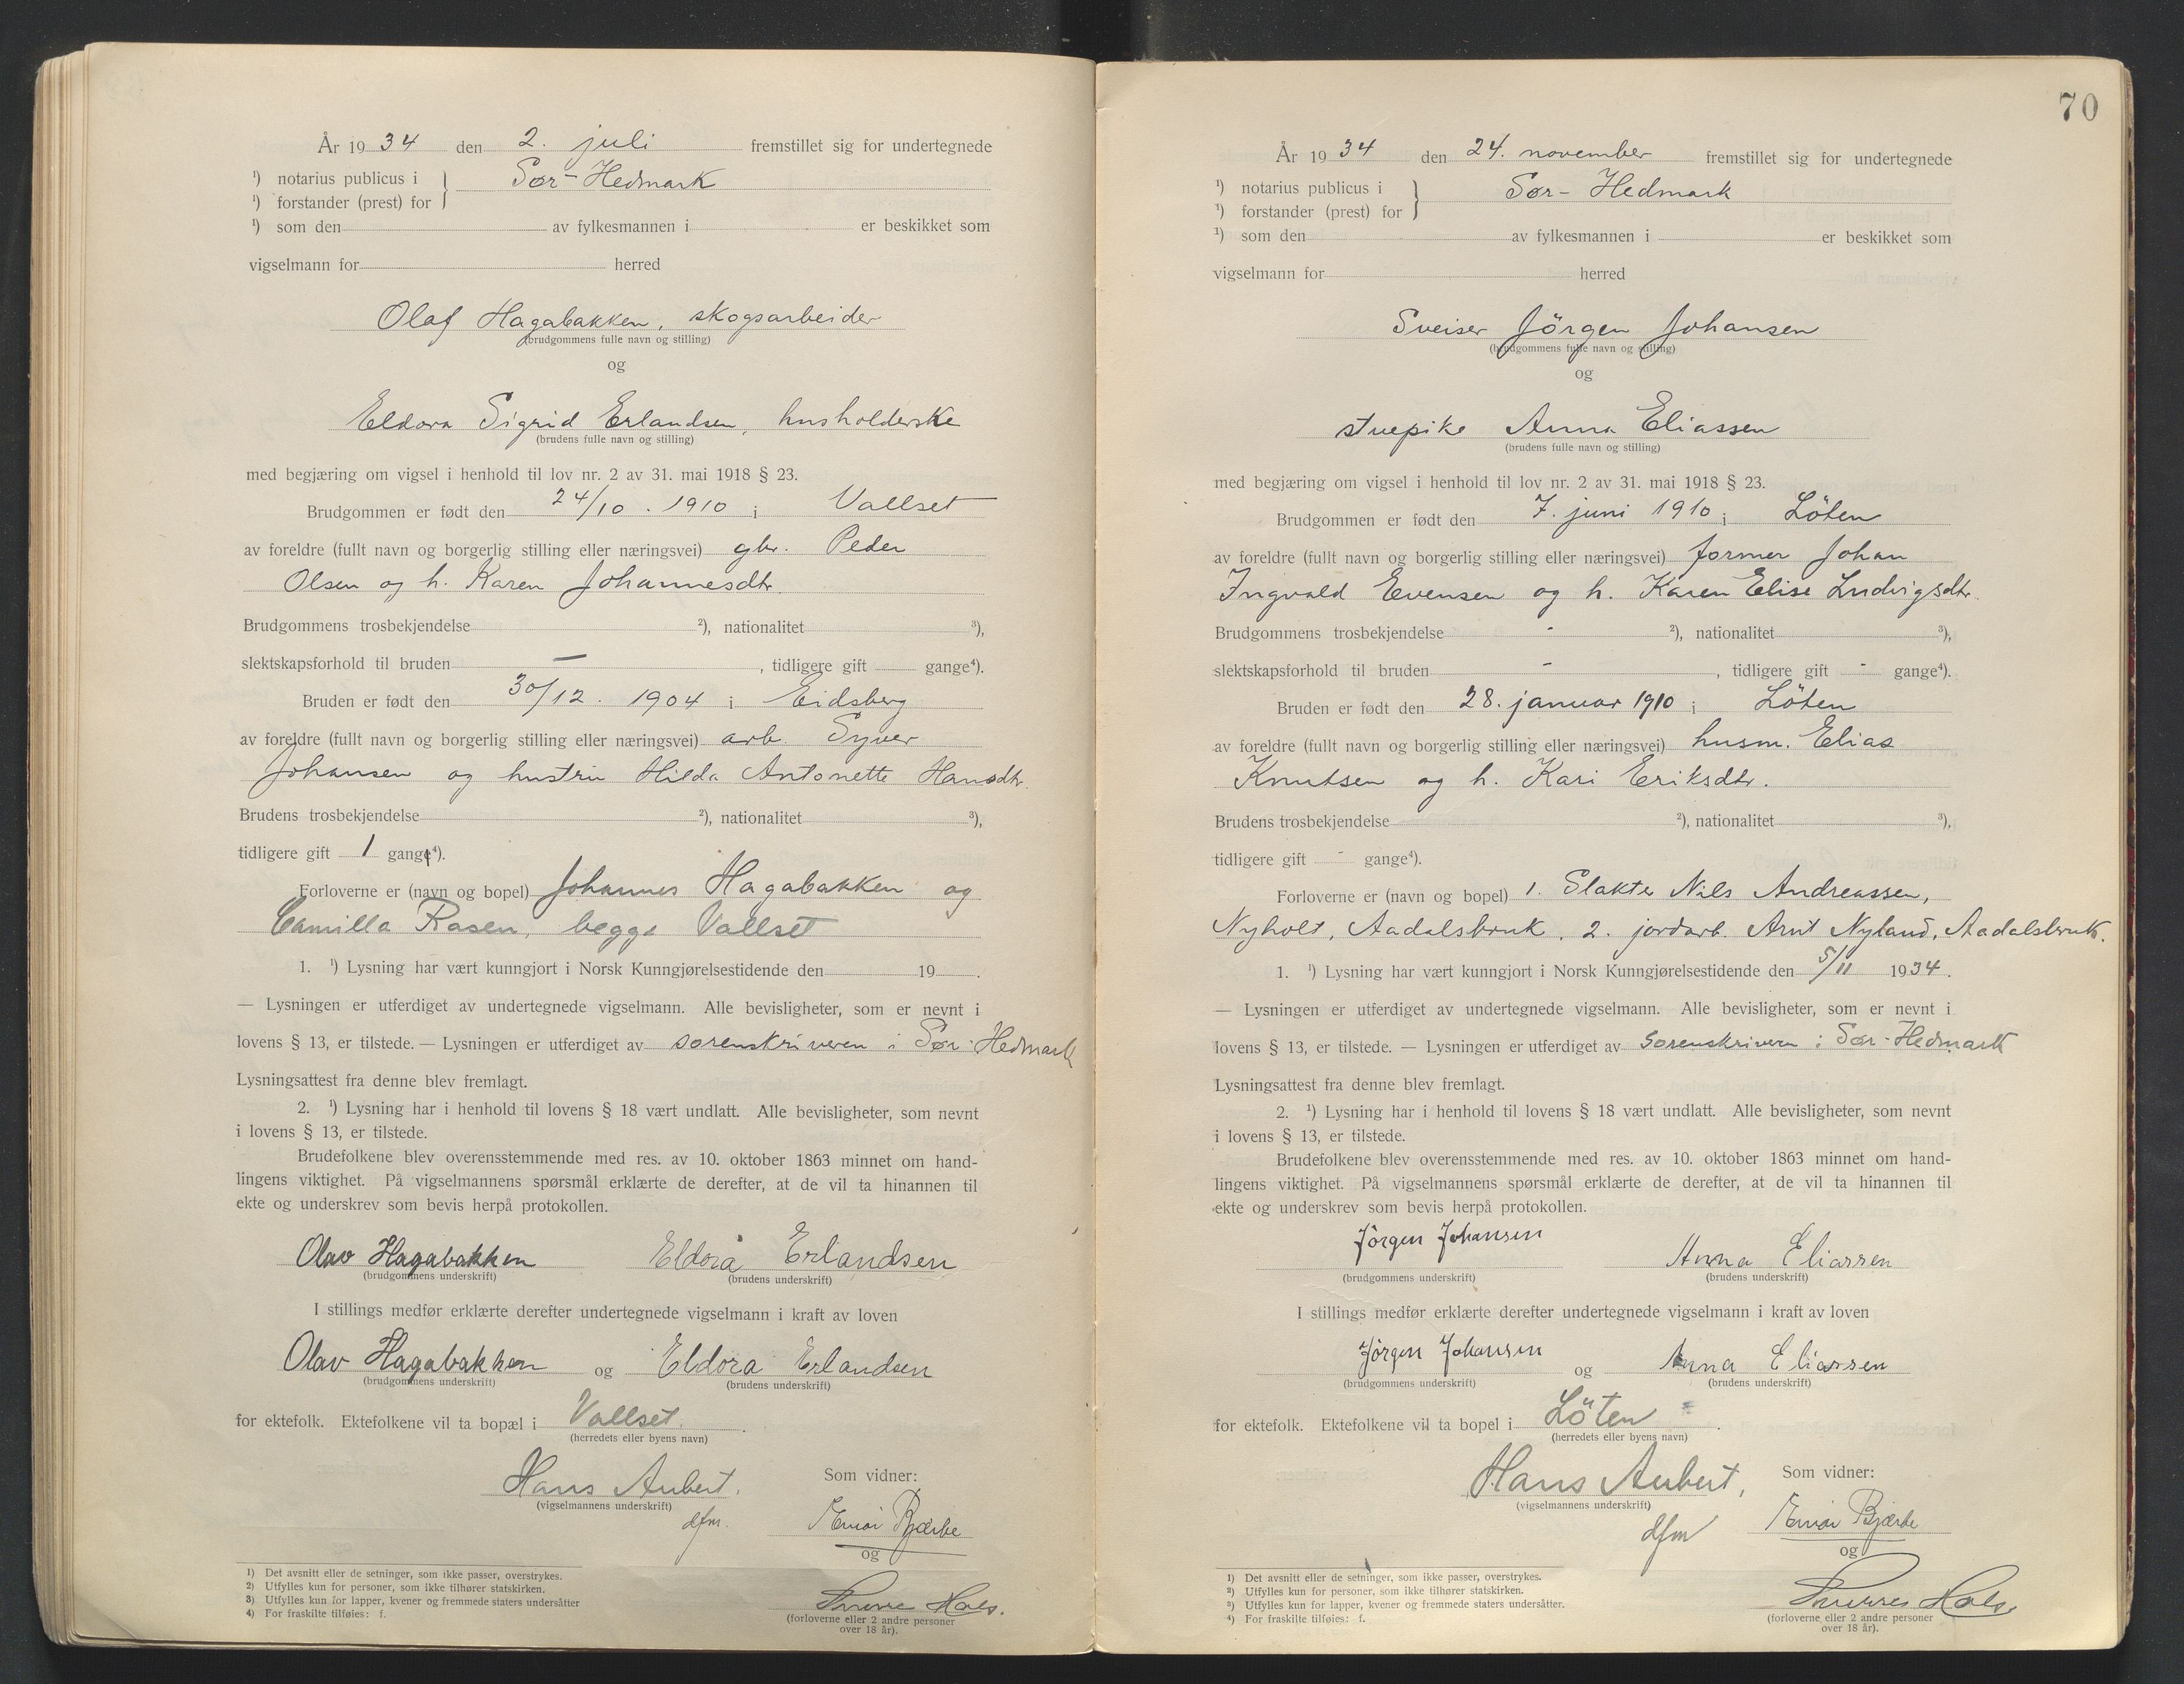 År 1934 den 2. juli fremstillet sig for undertegnede
¹) notarius publicus i } Sør-Hedmark
¹) forstander (prest) for
¹) som den av fylkesmannen i er beskikket som
vigselmann for herred
Olaf Hagabakken, skogsarbeider
(brudgommens fulle navn og stilling)
og
Eldora Sigrid Erlandsen, husholderske
(brudens fulle navn og stilling)
med begjæring om vigsel i henhold til lov nr. 2 av 31. mai 1918 § 23.
Brudgommen er født den 24/10. 1910 i Vallset
av foreldre (fullt navn og borgerlig stilling eller næringsvei) gbr. Peder
Olsen og h. Karen Johannesdtr.
Brudgommens trosbekjendelse ²), nationalitet ³),
slektskapsforhold til bruden —, tidligere gift gange⁴).
Bruden er født den 30/12. 1904 i Eidsberg
av foreldre (fullt navn og borgerlig stilling eller næringsvei) arb. Syver
Johansen og hustru Hilda Antonette Hansdtr.
Brudens trosbekjendelse ²), nationalitet ³),
tidligere gift 1 gang⁴).
Forloverne er (navn og bopel) Johannes Hagabakken og
Camilla Rasen, begge Vallset
1. ¹) Lysning har vært kunngjort i Norsk Kunngjørelsestidende den 19 .
— Lysningen er utferdiget av undertegnede vigselmann. Alle bevisligheter, som er nevnt i
lovens § 13, er tilstede. — Lysningen er utferdiget av sorenskriveren i Sør-Hedmark
Lysningsattest fra denne blev fremlagt.
2. ¹) Lysning har i henhold til lovens § 18 vært undlatt. Alle bevisligheter, som nevnt
i lovens § 13, er tilstede.
Brudefolkene blev overensstemmende med res. av 10. oktober 1863 minnet om hand-
lingens viktighet. På vigselmannens spørsmål erklærte de derefter, at de vil ta hinannen til
ekte og underskrev som bevis herpå protokollen.
Olav Hagabakken Eldora Erlandsen
(brudgommens underskrift) (brudens underskrift)
I stillings medfør erklærte derefter undertegnede vigselmann i kraft av loven
Olav Hagabakken og Eldora Erlandsen
(brudgommens underskrift) (brudens underskrift)
for ektefolk. Ektefolkene vil ta bopæl i Vallset.
(herredets eller byens navn)
Hans Aubert. Som vidner:
(vigselmannens underskrift)
dfm. Bjærke
og
Hals.
(forloverne eller 2 andre personer
over 18 år).
1) Det avsnitt eller de setninger, som ikke passer, overstrykes.
2) Utfylles kun for personer, som ikke tilhører statskirken.
3) Utfylles kun for lapper, kvener og fremmede staters undersåtter
4) For fraskilte tilføies: f.
70
År 1934 den 24. november fremstillet sig for undertegnede
¹) notarius publicus i } Sør-Hedmark
¹) forstander (prest) for
¹) som den av fylkesmannen i er beskikket som
vigselmann for herred
Sveiser Jörgen Johansen
(brudgommens fulle navn og stilling)
og
stuepike Anna Eliassen
(brudens fulle navn og stilling)
med begjæring om vigsel i henhold til lov nr. 2 av 31. mai 1918 § 23.
Brudgommen er født den 7. juni 1910 i Löten
av foreldre (fullt navn og borgerlig stilling eller næringsvei) former Johan
Ingvald Evensen og h. Karen Elise Ludvigsdtr.
Brudgommens trosbekjendelse - ²), nationalitet ³),
slektskapsforhold til bruden -, tidligere gift - gange⁴).
Bruden er født den 28. januar 1910 i Löten
av foreldre (fullt navn og borgerlig stilling eller næringsvei) husm. Elias
Knutsen og h. Kari Eriksdtr.
Brudens trosbekjendelse ²), nationalitet ³),
tidligere gift - gange⁴).
Forloverne er (navn og bopel) 1. Slakter Nils Andreassen,
Nyholt, Aadalsbruk, 2. jordarb. Arnt Nyland, Aadalsbruk.
1. ¹) Lysning har vært kunngjort i Norsk Kunngjørelsestidende den 5/11 1934.
— Lysningen er utferdiget av undertegnede vigselmann. Alle bevisligheter, som er nevnt i
lovens § 13, er tilstede. — Lysningen er utferdiget av sorenskriveren i Sør-Hedmark
Lysningsattest fra denne blev fremlagt.
2. ¹) Lysning har i henhold til lovens § 18 vært undlatt. Alle bevisligheter, som nevnt
i lovens § 13, er tilstede.
Brudefolkene blev overensstemmende med res. av 10. oktober 1863 minnet om hand-
lingens viktighet. På vigselmannens spørsmål erklærte de derefter, at de vil ta hinannen til
ekte og underskrev som bevis herpå protokollen.
Jörgen Johansen Anna Eliassen
(brudgommens underskrift) (brudens underskrift)
I stillings medfør erklærte derefter undertegnede vigselmann i kraft av loven
Jörgen Johansen og Anna Eliassen
(brudgommens underskrift) (brudens underskrift)
for ektefolk. Ektefolkene vil ta bopel i Löten.
(herredets eller byens navn)
Hans Aubert, Som vidner:
(vigselmannens underskrift)
dfm Bjærke
og
Hals.
(forloverne eller 2 andre personer
over 18 år).
1) Det avsnitt eller de setninger, som ikke passer, overstrykes.
2) Utfylles kun for personer, som ikke tilhører statskirken.
3) Utfylles kun for lapper, kvener og fremmede staters undersåtter.
4) For fraskilte tilføies: f.